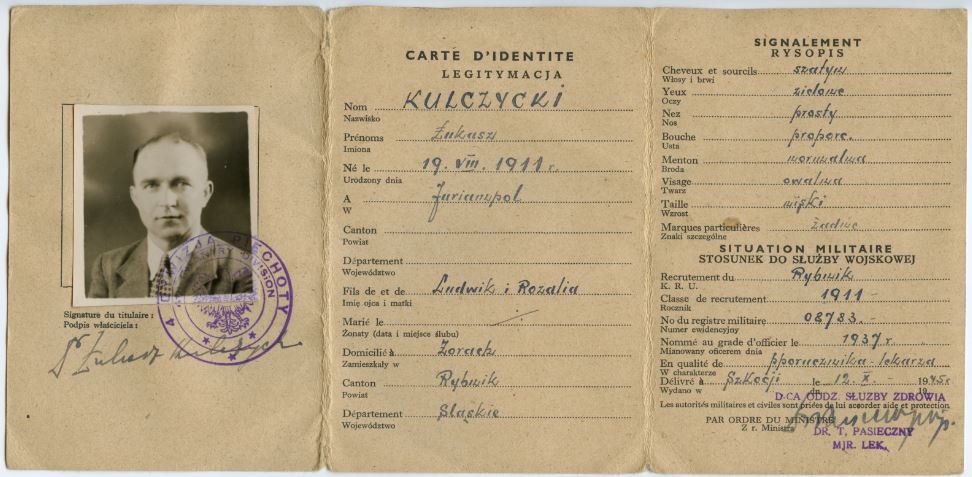 4 DYWIZJA PIECHOTY
INFANTRY DIVISION
Signature du titulaire :
Podpis właściciela :
Dr Łukasz Kulczycki
CARTE D'IDENTITE
LEGITYMACJA
Nom KULCZYCKI
Nazwisko
Prénoms Łukasz
Imiona
Né le 19. VIII. 1911 r.
Urodzony dnia
A Juriampol
W
Canton
Powiat
Département
Województwo
Fils de et de Ludwik i Rozalia
Imię ojca i matki
Marié le
Żonaty (data i miejsce ślubu)
Domicilié à Żorach
Zamieszkały w
Canton Rybnik
Powiat
Département Śląskie
Województwo
SIGNALEMENT
RYSOPIS
Cheveux et sourcils szatyn
Włosy i brwi
Yeux zielone
Oczy
Nez prosty
Nos
Bouche proporc.
Usta
Menton normalna
Broda
Visage owalna
Twarz
Taille niski
Wzrost
Marques particulières żadne
Znaki szczególne
SITUATION MILITAIRE
STOSUNEK DO SŁUŻBY WOJSKOWEJ
Recrutement du Rybnik
K. R. U.
Classe de recrutement 1911 -
Rocznik
No du registre militaire 08783. -
Numer ewidencyjny
Nommé au grade d'officier le 1937 r.
Mianowany oficerem dnia
En qualité de pporucznika - lekarza
W charakterze
Délivré à Szkocji le 12. X. - 1945 r
Wydano w dn. 19
D-CA ODDZ. SŁUŻBY ZDROWIA
Les autorités militaires et civiles sont priées de lui accorder aide et protection
PAR ORDRE DU MINISTRE
Z r. Ministra
DR. T. PASIECZNY
MJR. LEK.